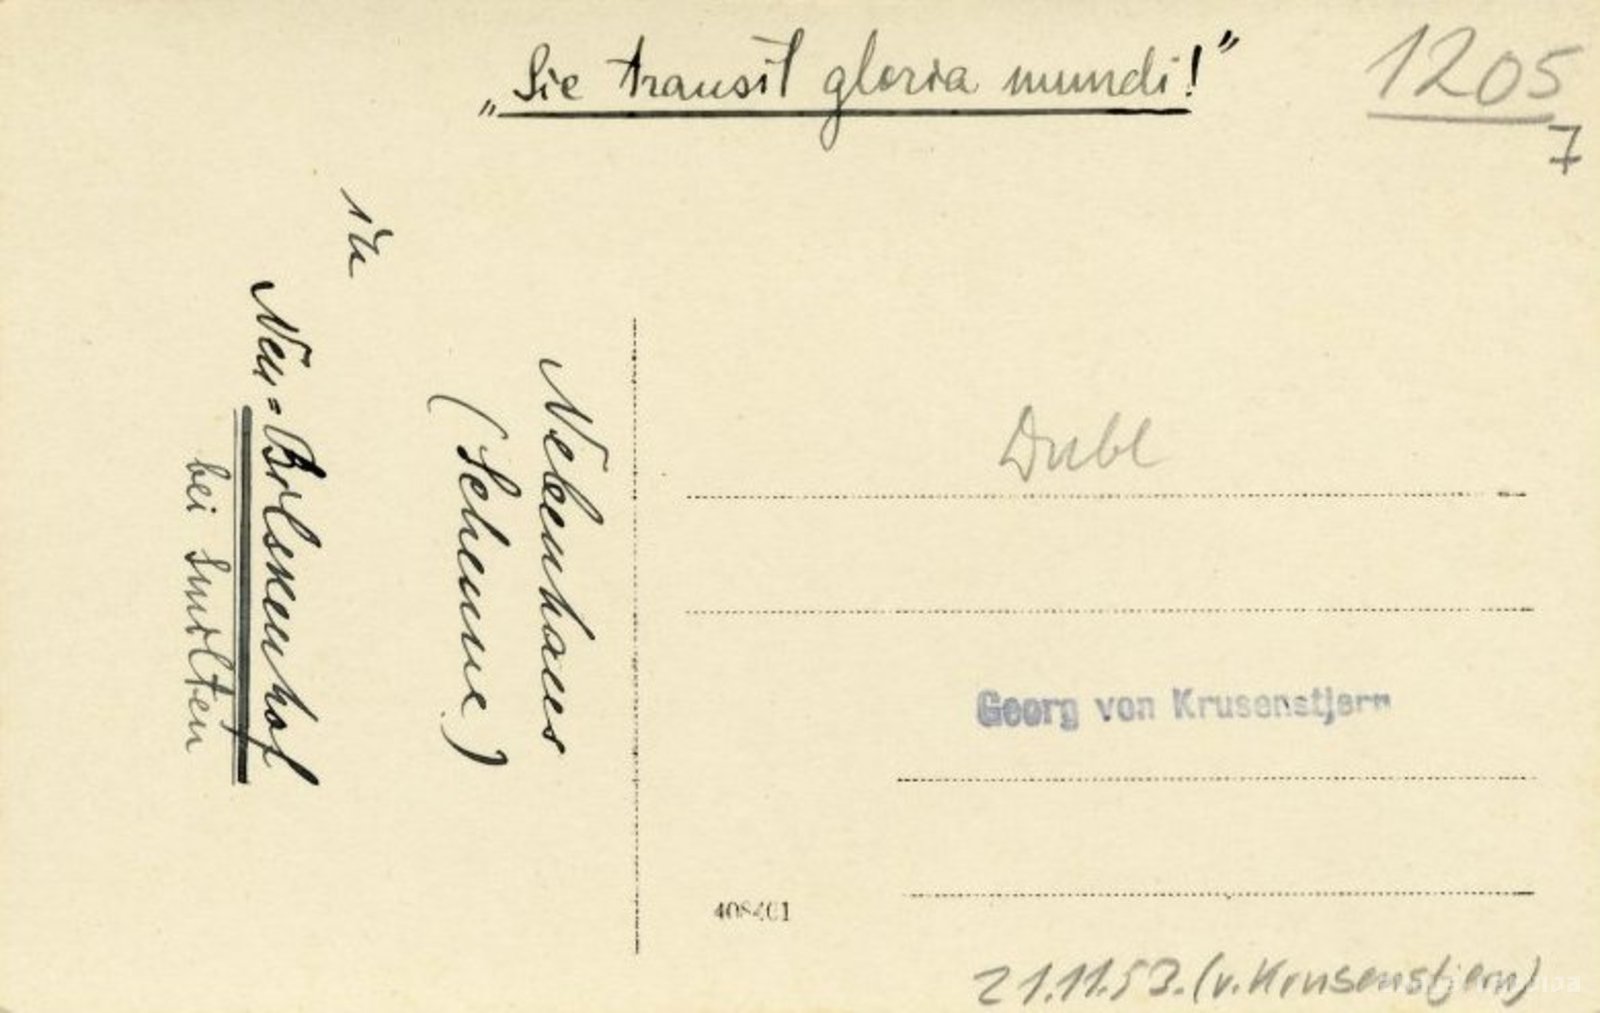 „Sic transit gloria mundi!”
1205
7
Nebenhaus
(Scheune)
in
Neu=Bilskenhof
bei Smilten
Dubl
Georg von Krusenstjern
21.11.53. (v. Krusenstjern)